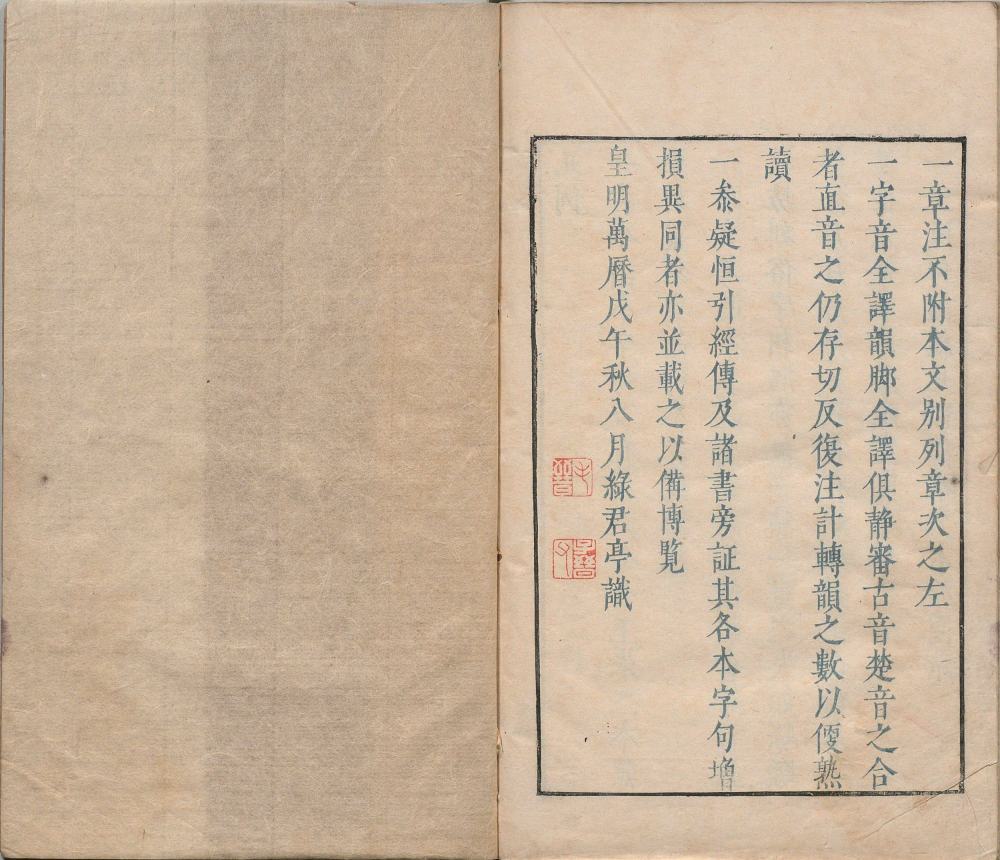 一章注不附本文别列章次之左
一字音全譯韻脚全譯俱静審古音楚音之合
者直音之仍存切反復注計轉韻之數以便熟
讀
一叅疑恒引經傳及諸書旁証其各本字句增
損異同者亦並載之以備博覧
皇明萬曆戊午秋八月綠君亭識
毛晉